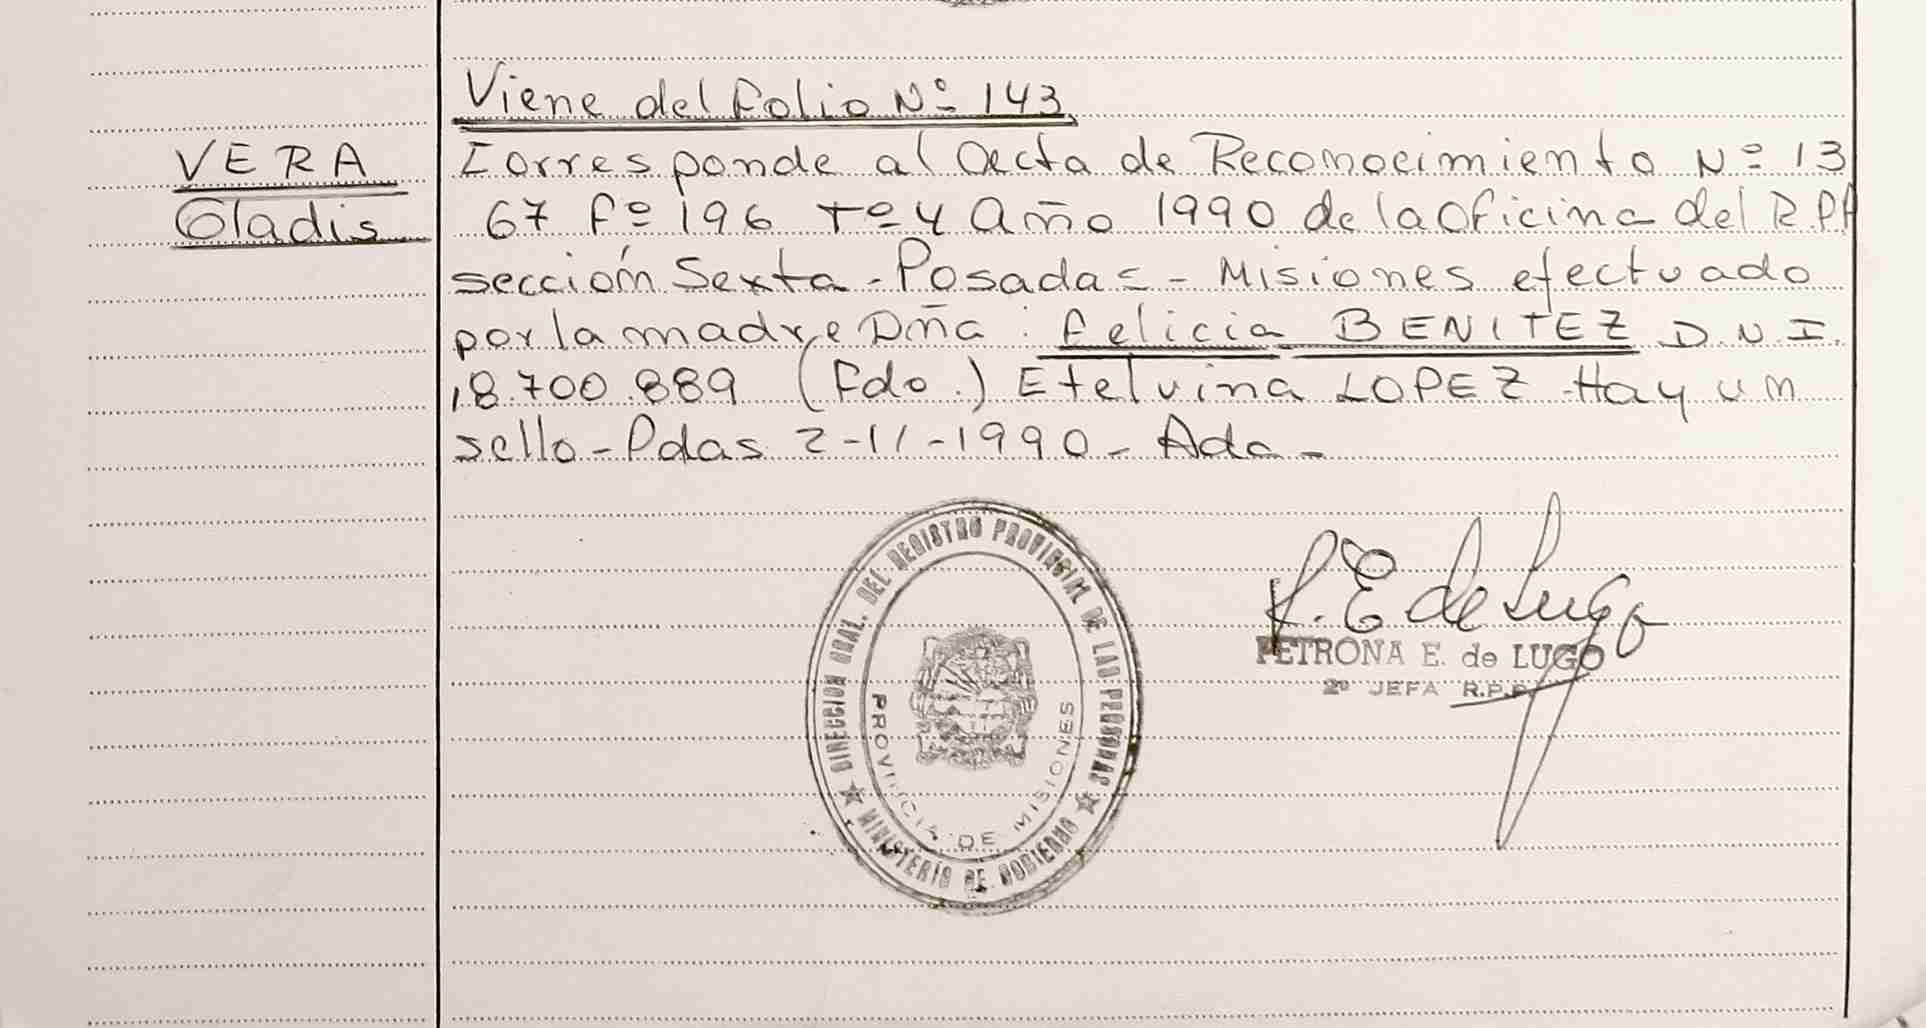 Viene del folio Nº 143
VERA
Gladis
Corresponde al Acta de Reconocimiento Nº 13
67 fº 196 Tº 4 Año 1990 de la Oficina del R.P.P
sección Sexta - Posadas - Misiones efectuado
por la madre Dña : Felicia BENITEZ D.N.I.
18.700.889 (Fdo.) Etelvina LOPEZ - Hay un
sello - Pdas 2-11-1990 - Ada -
DIRECCION GRAL. DEL REGISTRO PROVINCIAL DE LAS PERSONAS
MINISTERIO DE GOBIERNO
PROVINCIA DE MISIONES
P. E de Lugo
PETRONA E. de LUGO
2º JEFA R.P.P.